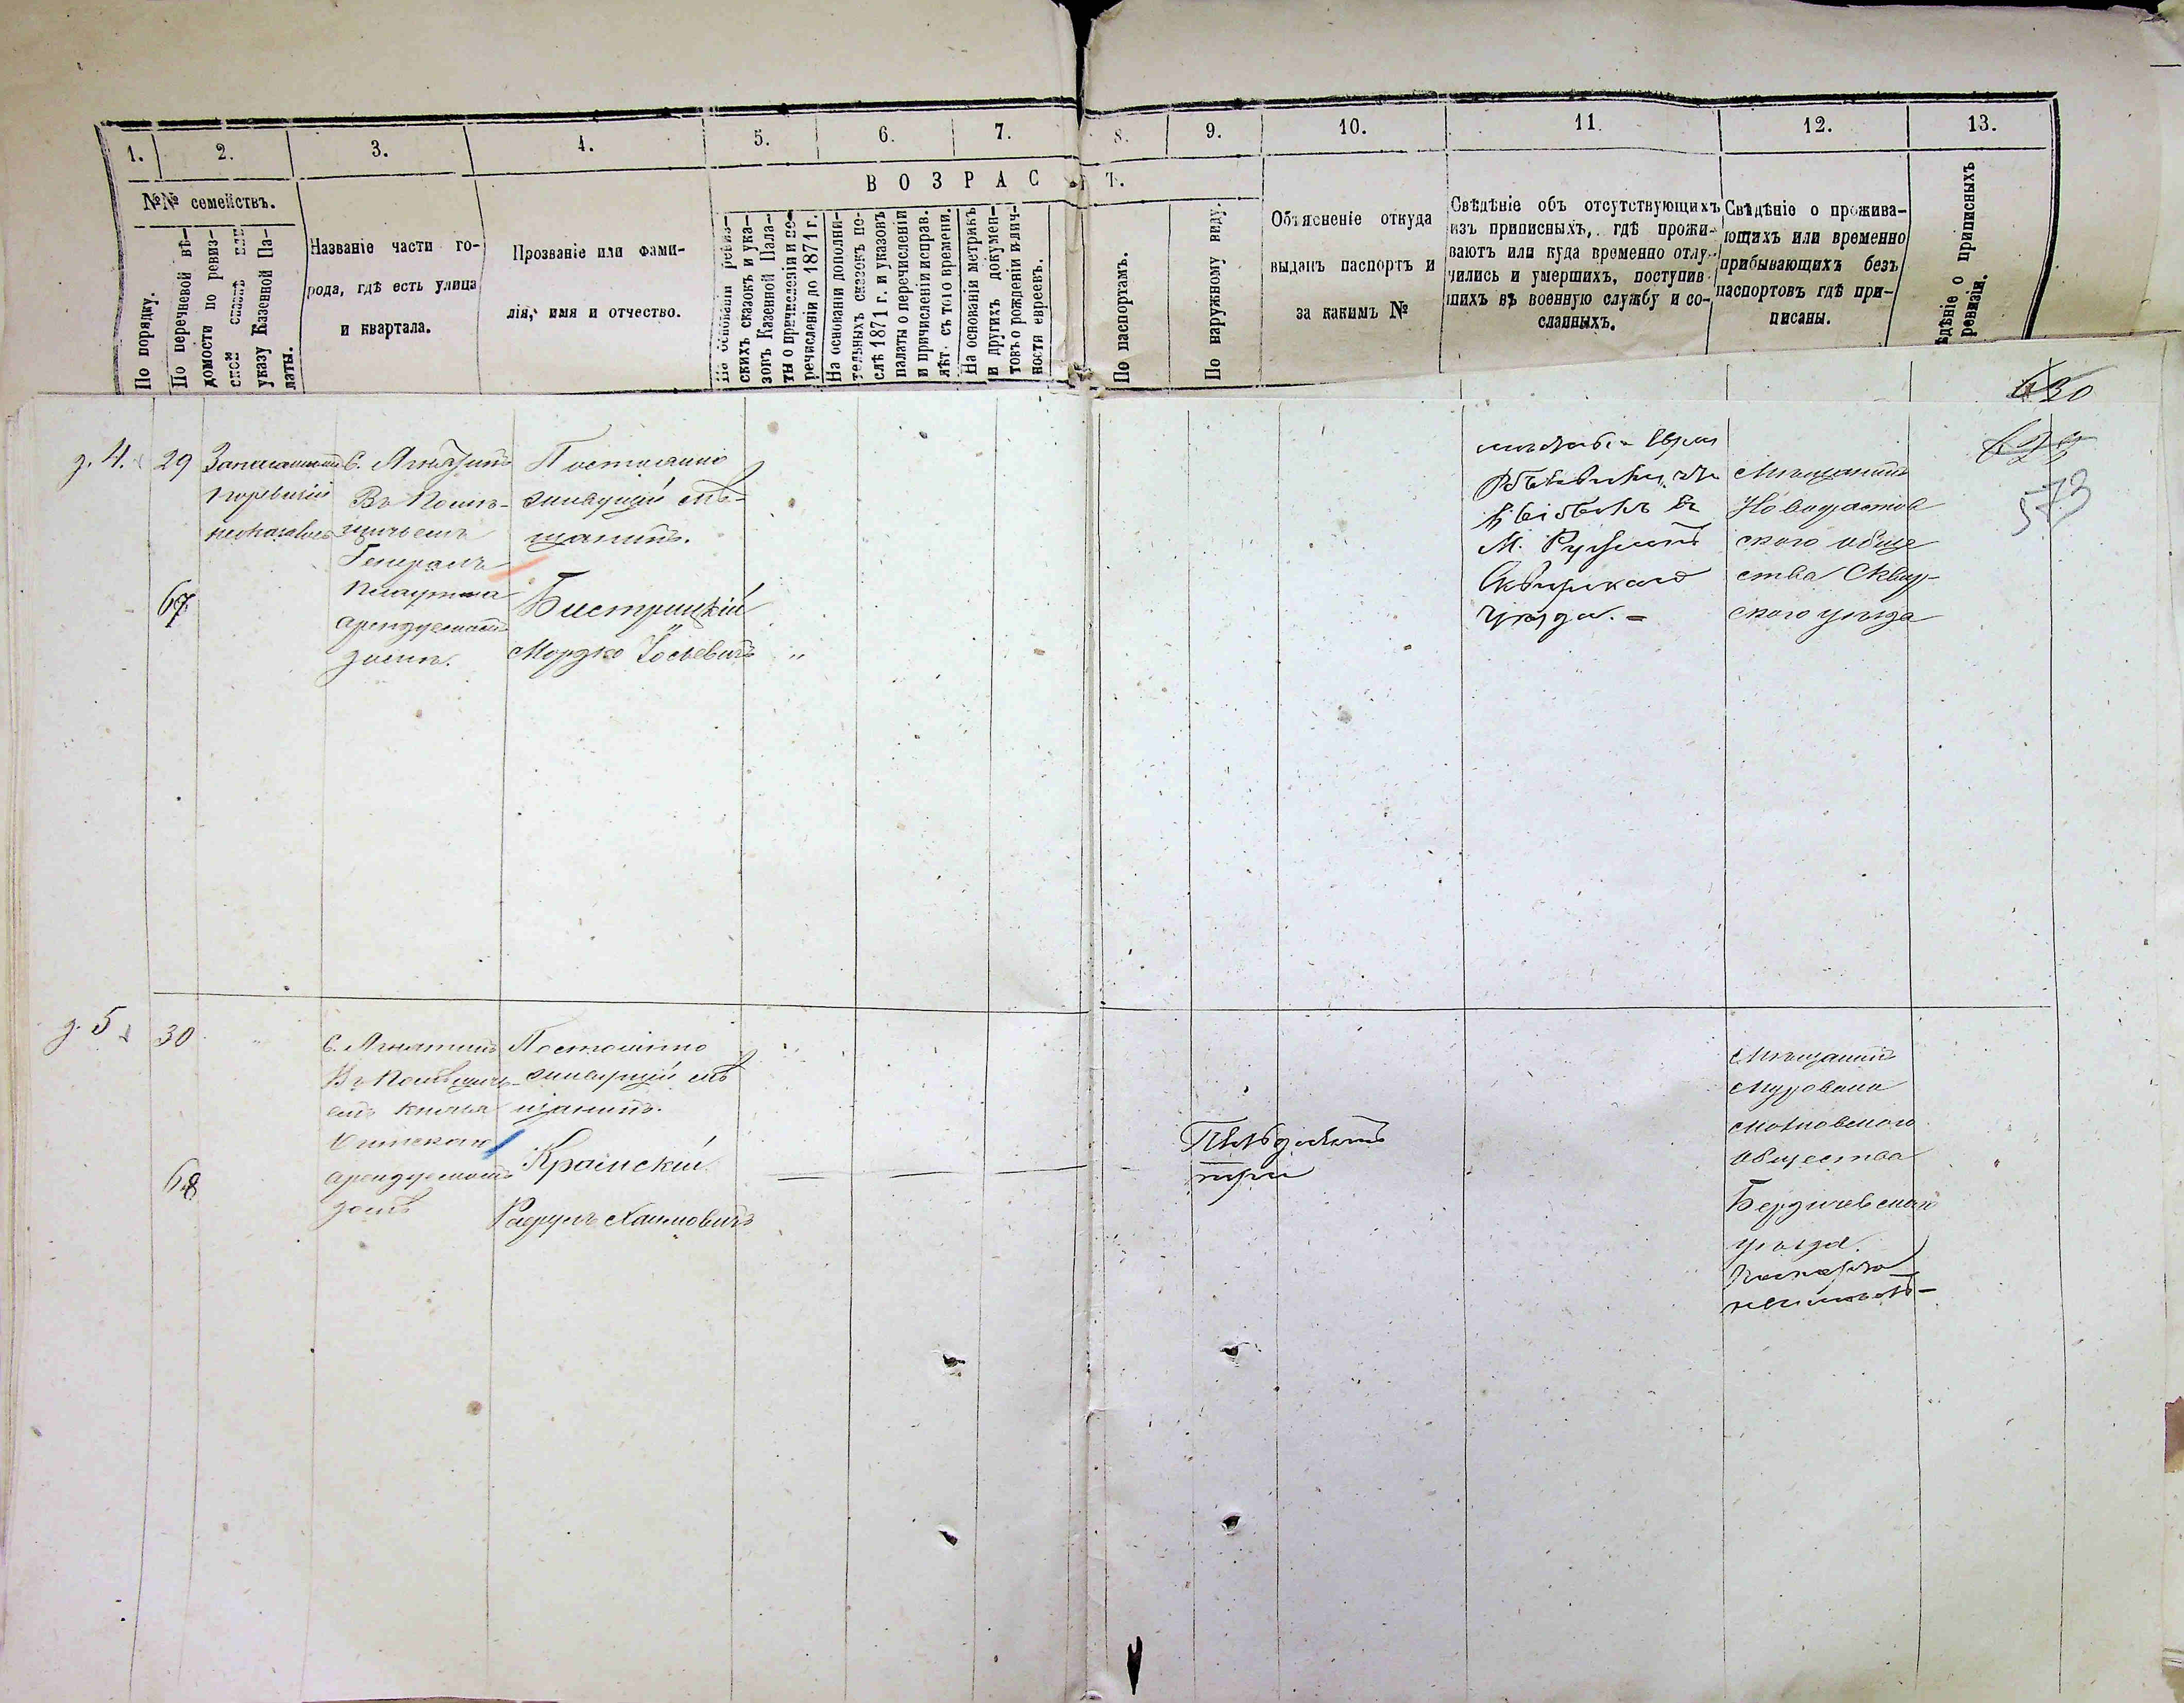 1. 2. 3. 4. 5. 6. 7. 8. 9. 10. 11. 12. 13.
ВОЗРАСТ.
№№ семействъ.
По порядку.
По перечневой вѣ-
домости по ревиз-
ской сказкѣ или
указу Казенной Па-
латы.
Названіе части го-
рода, гдѣ есть улица
и квартала.
Прозваніе или фами-
лія, имя и отчество.
На основаніи ревиз-
скихъ сказокъ и ука-
зовъ Казенной Пала-
ты о причисленіи и пе-
речисленіи до 1871 г.
На основаніи дополни-
тельныхъ сказокъ по-
слѣ 1871 г. и указовъ
палаты о перечисленіи
и причисленіи исправ.
лѣт. съ того времени.
На основаніи метрикъ
и другихъ докумен-
товъ о рожденіи и лич-
ности евреевъ.
По паспортамъ.
По наружному виду.
Объясненіе откуда
выданъ паспортъ и
за какимъ №
Свѣдѣніе объ отсутствующихъ
изъ приписныхъ, гдѣ прожи-
ваютъ или куда временно отлу-
чились и умершихъ, поступив-
шихъ въ военную службу и со-
сланныхъ.
Свѣдѣніе о прожива-
ющихъ или временно
прибывающихъ безъ
паспортовъ гдѣ при-
писаны.
ѣдѣніе о приписныхъ
ревизіи.
630
629
573
д. 4.
29
67
С. Ягнятинъ
Въ Помѣ-
щичьемъ
Генерала
арендуемомъ
домѣ.
Постоянно
живущій мѣ-
щанинъ.
Бистрицкій
Мордко Іосьевичъ
"
М. Ружинѣ
Сквирскаго
уѣзда. =
Мѣщанинъ
Новофастов
скаго обще
ства Сквир-
скаго уѣзда
д. 5
30
68
С. Ягнятинъ
Въ Помѣщичь-
емъ Князя
арендуемомъ
домѣ
Постоянно
живущій мѣ
щанинъ.
Краинскій
Хаимовичъ
три
Мѣщанинъ
Мурована
махновскаго
общества
Бердичевскаго
уѣзда.
Паспорта
неимѣетъ -